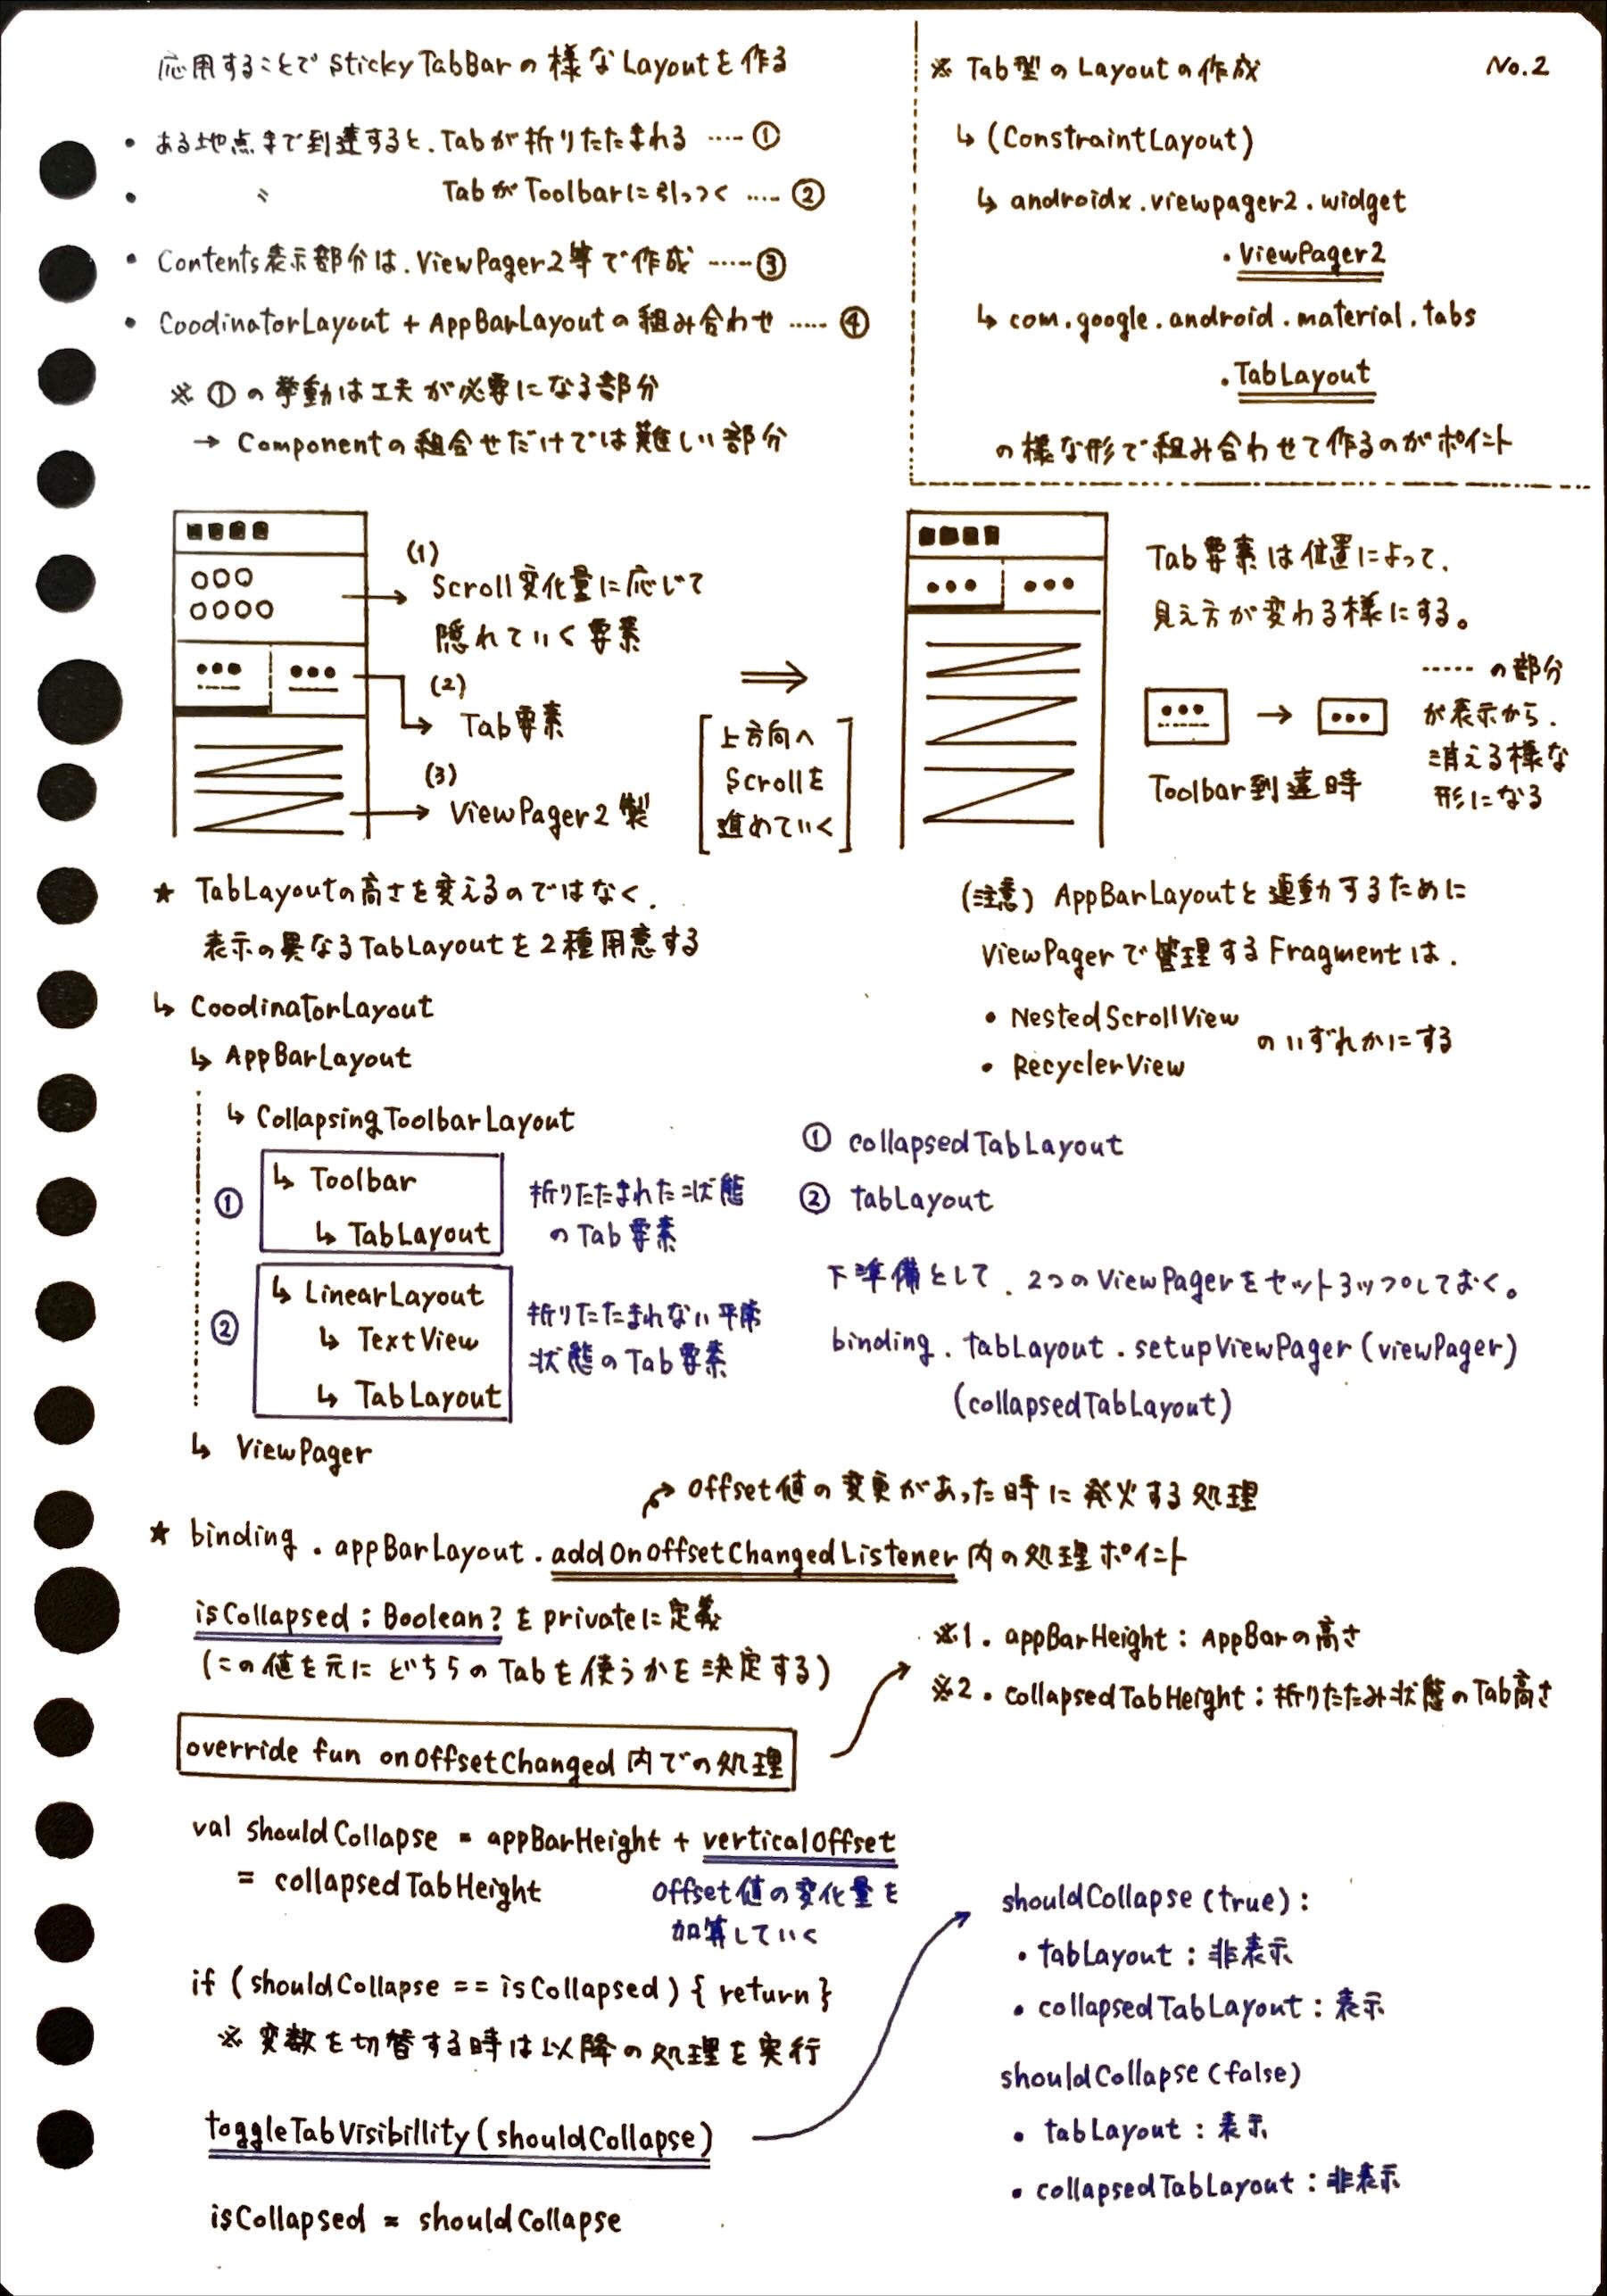 応用することで StickyTabBarの様なLayoutを作る
• ある地点まで到達すると、Tabが折りたたまれる ····· ①
• 〃 TabがToolbarに引っつく ····· ②
• Contents表示部分は、ViewPager2等で作成 ····· ③
• CoodinatorLayout + AppBarLayoutの組み合わせ ····· ④
※ ①の挙動は工夫が必要になる部分
→ Componentの組合せだけでは難しい部分
No.2
※ Tab型のLayoutの作成
↳ (ConstraintLayout)
↳ androidx.viewpager2.widget
.ViewPager2
↳ com.google.android.material.tabs
.TabLayout
の様な形で組み合わせて作るのがポイント
(1)
Scroll変化量に応じて
隠れていく要素
(2)
Tab要素
(3)
ViewPager2製
⇒
上方向へ
Scrollを
進めていく
Tab要素は位置によって、
見え方が変わる様にする。
····· の部分
が表示から、
消える様な
形になる
→
Toolbar到達時
★ TabLayoutの高さを変えるのではなく、
表示の異なるTabLayoutを2種用意する
↳ CoodinatorLayout
↳ AppBarLayout
↳ CollapsingToolbarLayout
①
↳ Toolbar
↳ TabLayout
折りたたまれた状態
のTab要素
②
↳ LinearLayout
↳ TextView
↳ TabLayout
折りたたまれない平常
状態のTab要素
↳ ViewPager
(注意) AppBarLayoutと連動するために
ViewPagerで管理するFragmentは、
• NestedScrollView
• RecyclerView
のいずれかにする
① collapsedTabLayout
② tabLayout
下準備として、2つのViewPagerをセットアップしておく。
binding.tabLayout.setupViewPager(viewPager)
(collapsedTabLayout)
Offset値の変更があった時に発火する処理
★ binding.appBarLayout.addOnOffsetChangedListener内の処理ポイント
isCollapsed : Boolean? を privateに定義
(この値を元にどちらのTabを使うかを決定する)
※1. appBarHeight : AppBarの高さ
※2. collapsedTabHeight : 折りたたみ状態のTab高さ
override fun onOffsetChanged 内での処理
val shouldCollapse = appBarHeight + verticalOffset
= collapsedTabHeight
Offset値の変化量を
加算していく
if (shouldCollapse == isCollapsed) { return }
※ 変数を切替する時は以降の処理を実行
toggleTabVisibillity(shouldCollapse)
isCollapsed = shouldCollapse
shouldCollapse (true) :
• tabLayout : 非表示
• collapsedTabLayout : 表示
shouldCollapse (false)
• tabLayout : 表示
• collapsedTabLayout : 非表示